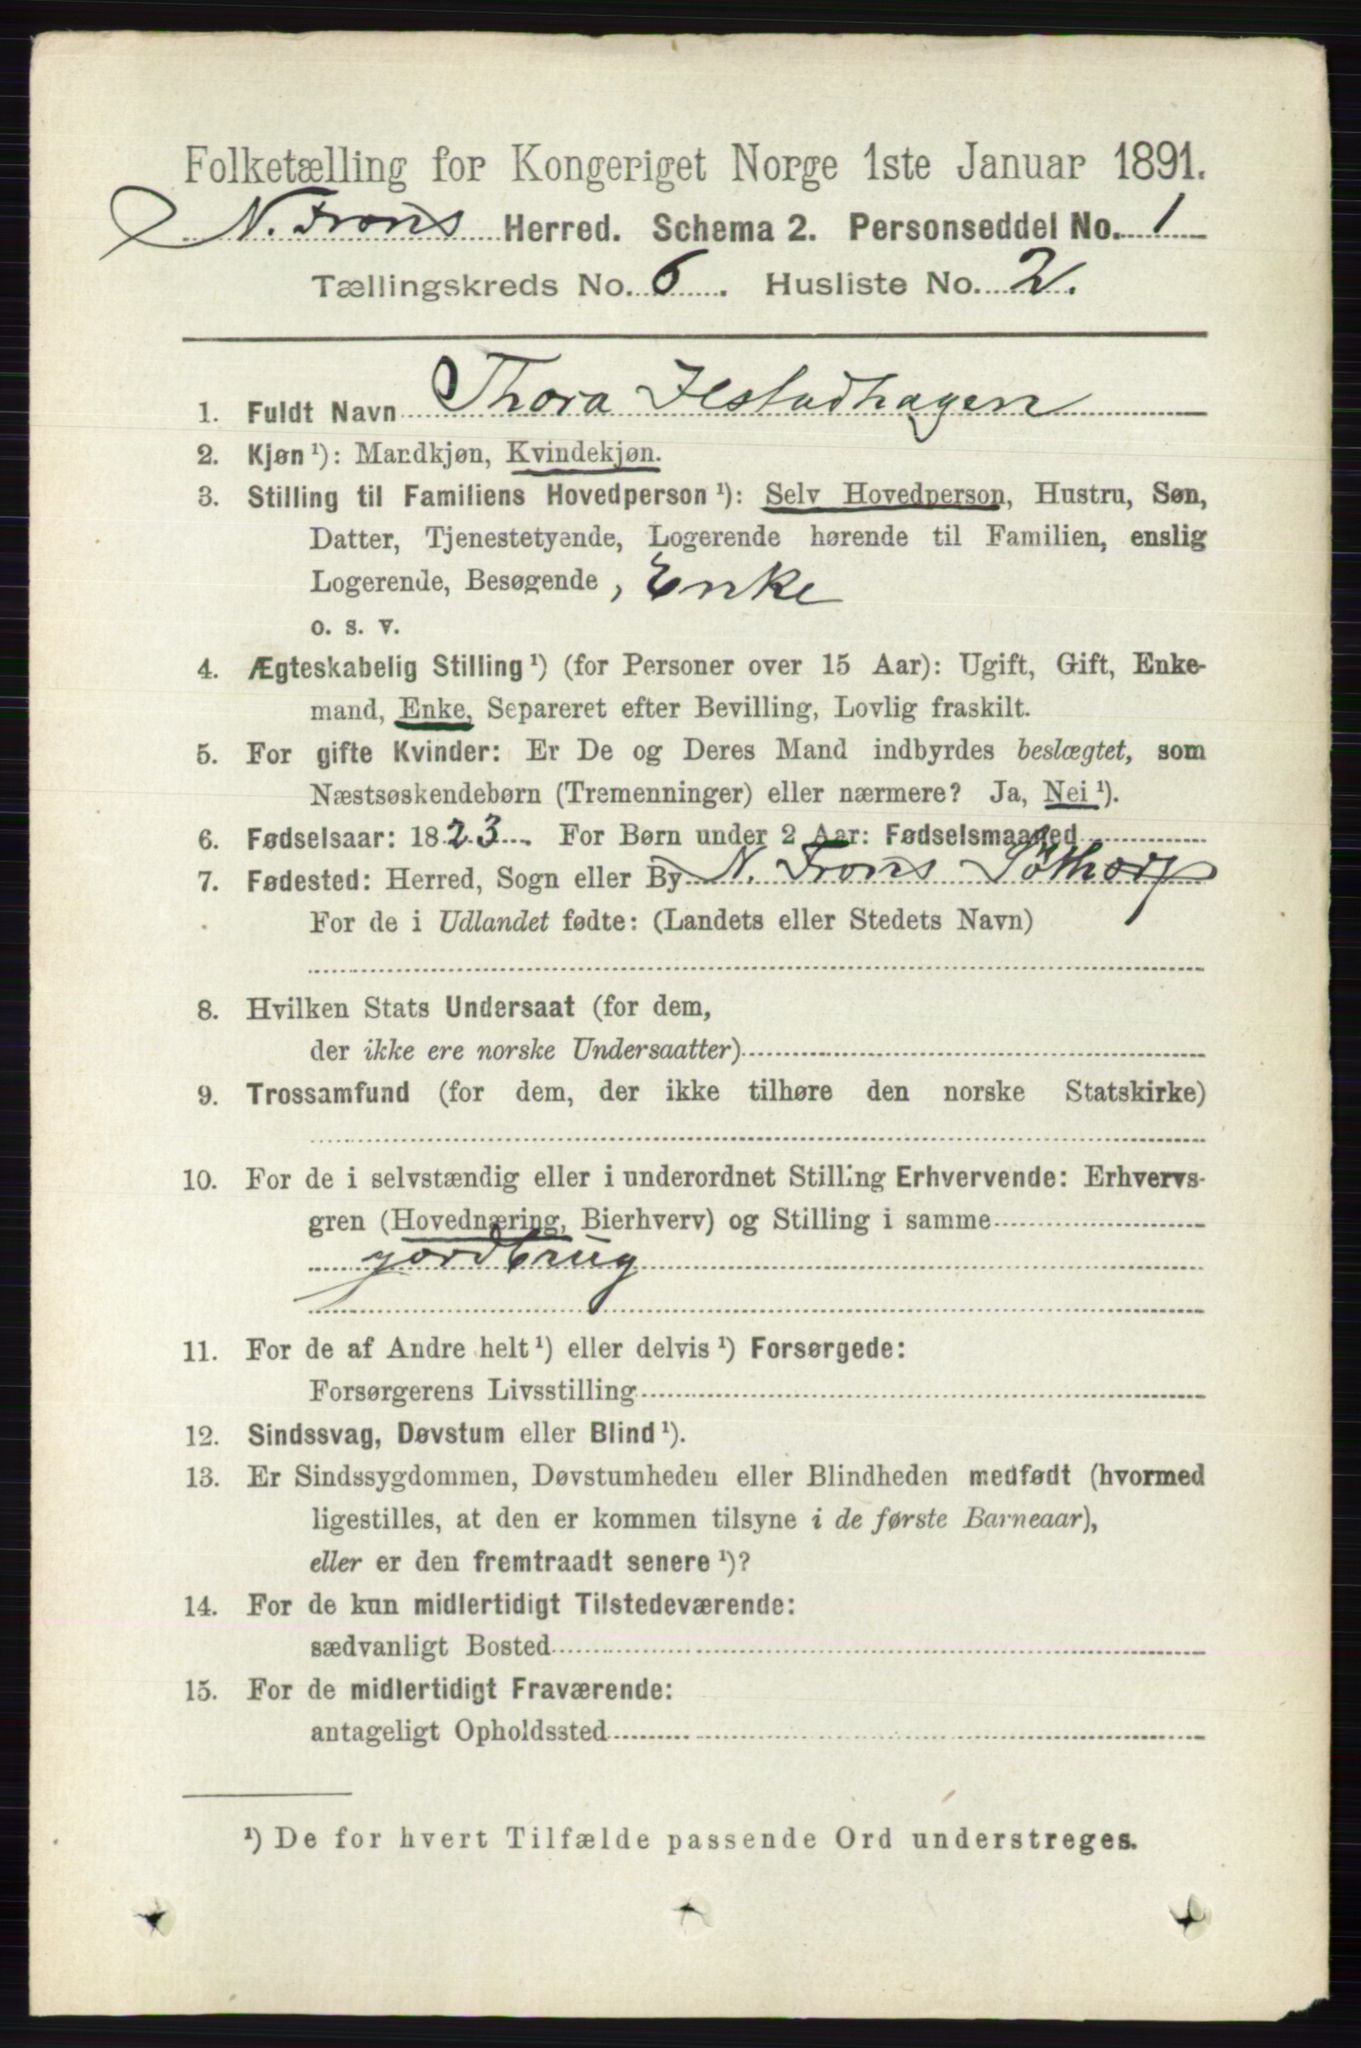 Folketælling for Kongeriget Norge 1ste Januar 1891.
N. Frons Herred. Schema 2. Personseddel No. 1
Tællingskreds No. 6. Husliste No. 2.
1. Fuldt Navn Thora Ilstadhagen
2. Kjøn ¹): Mandkjøn, Kvindekjøn.
3. Stilling til Familiens Hovedperson ¹): Selv Hovedperson, Hustru, Søn,
Datter, Tjenestetyende, Logerende hørende til Familien, enslig
Logerende, Besøgende, Enke
o. s. v.
4. Ægteskabelig Stilling ¹) (for Personer over 15 Aar): Ugift, Gift, Enke-
mand, Enke, Separeret efter Bevilling, Lovlig fraskilt.
5. For gifte Kvinder: Er De og Deres Mand indbyrdes beslægtet, som
Næstsøskendebørn (Tremenninger) eller nærmere? Ja, Nei ¹).
6. Fødselsaar: 1823. For Børn under 2 Aar: Fødselsmaaned
7. Fødested: Herred, Sogn eller By N. Frons Söthorp
For de i Udlandet fødte: (Landets eller Stedets Navn)
8. Hvilken Stats Undersaat (for dem,
der ikke ere norske Undersaatter)
9. Trossamfund (for dem, der ikke tilhøre den norske Statskirke)
10. For de i selvstændig eller i underordnet Stilling Erhvervende: Erhvervs-
gren (Hovednæring, Bierhverv) og Stilling i samme
jordbrug
11. For de af Andre helt ¹) eller delvis ¹) Forsørgede:
Forsørgerens Livsstilling
12. Sindssvag, Døvstum eller Blind ¹).
13. Er Sindssygdommen, Døvstumheden eller Blindheden medfødt (hvormed
ligestilles, at den er kommen tilsyne i de første Barneaar),
eller er den fremtraadt senere ¹)?
14. For de kun midlertidigt Tilstedeværende:
sædvanligt Bosted
15. For de midlertidigt Fraværende:
antageligt Opholdssted
¹) De for hvert Tilfælde passende Ord understreges.